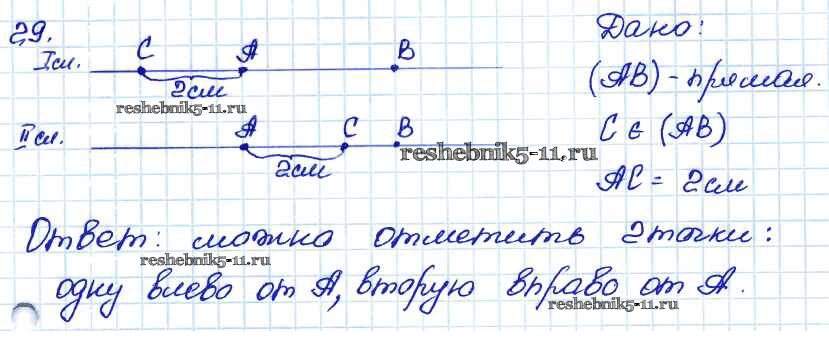 29.
I сл. C A B
2 см
reshebnik5-11.ru
II сл. A C B
2 см
reshebnik5-11.ru
Дано:
(AB) - прямая.
C ∈ (AB)
AC = 2 см
Ответ: можно отметить 2 точки:
reshebnik5-11.ru
одну влево от A, вторую вправо от A.
reshebnik5-11.ru